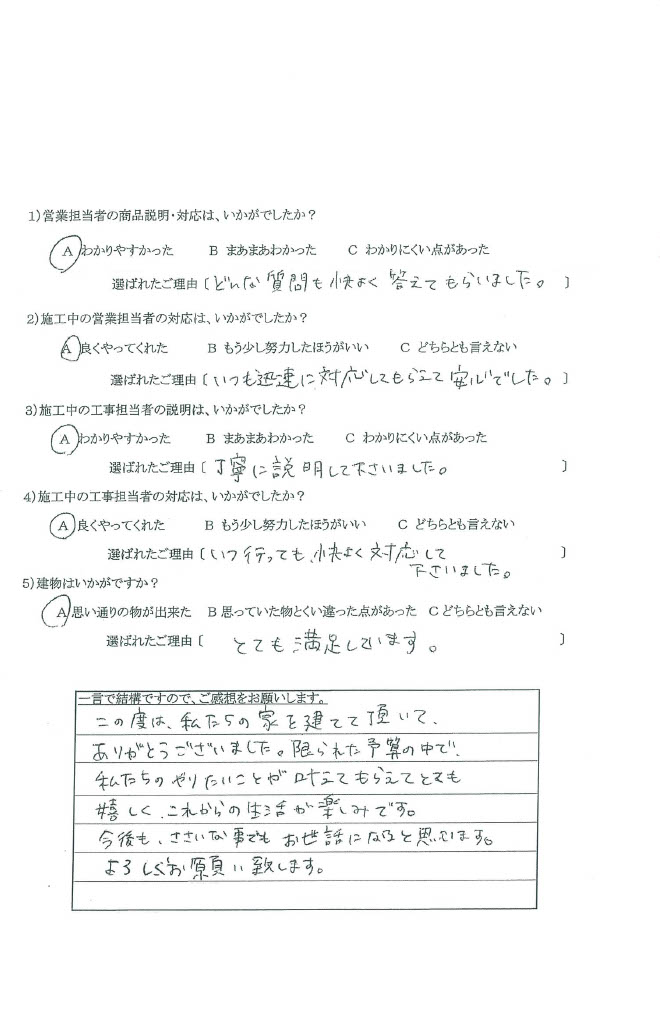 1)営業担当者の商品説明・対応は、いかがでしたか?
A わかりやすかった B まあまあわかった C わかりにくい点があった
選ばれたご理由〔どんな質問も快よく答えてもらいました。〕
2)施工中の営業担当者の対応は、いかがでしたか?
A 良くやってくれた B もう少し努力したほうがいい C どちらとも言えない
選ばれたご理由〔いつも迅速に対応してもらえて安心でした。〕
3)施工中の工事担当者の説明は、いかがでしたか?
A わかりやすかった B まあまあわかった C わかりにくい点があった
選ばれたご理由〔丁寧に説明して下さいました。〕
4)施工中の工事担当者の対応は、いかがでしたか?
A 良くやってくれた B もう少し努力したほうがいい C どちらとも言えない
選ばれたご理由〔いつ行っても、快よく対応して〕
下さいました。
5)建物はいかがですか?
A 思い通りの物が出来た B 思っていた物とくい違った点があった C どちらとも言えない
選ばれたご理由〔とても満足しています。〕
一言で結構ですので、ご感想をお願いします。
この度は、私たちの家を建てて頂いて、
ありがとうございました。限られた予算の中で、
私たちのやりたいことが叶えてもらえてとても
嬉しく、これからの生活が楽しみです。
今後も、ささいな事でもお世話になると思います。
よろしくお願い致します。